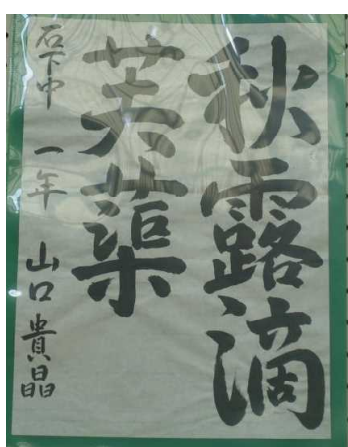 秋露滴
芙蕖
石下中 一年 山口貴晶